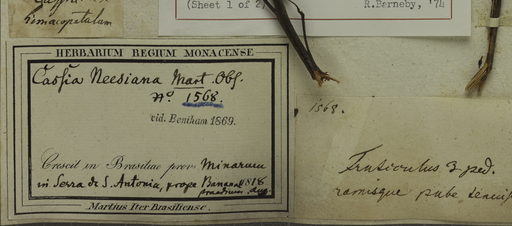 (Sheet 1 of 2)
R.Barneby, '74
HERBARIUM REGIUM MONACENSE
Cassia Neesiana Mart. Obs.
No. 1568.
vid. Bentham 1869.
Crescit in Brasiliae prov. Minarum
in Serra de S. Antonio, prope
1818
Martius Iter Brasiliense.
1568.
Fruticulus 3 ped.
ramisque pube